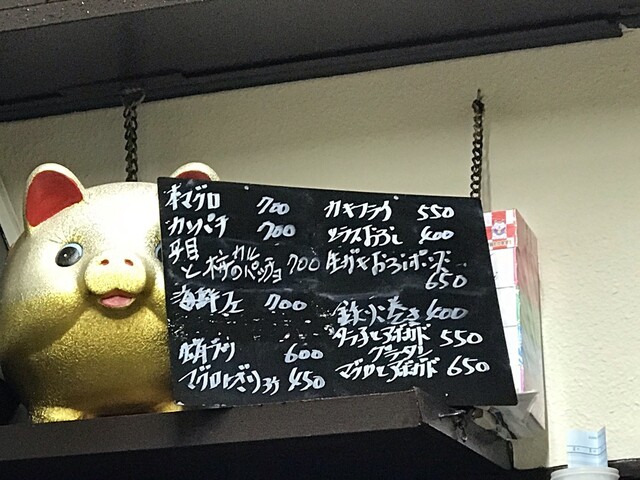 本マグロ 700
カンパチ 700
平目
と柿のカルパッチョ 700
海鮮 700
600
マグロ 450
カキフライ 550
シラスおろし 400
生ガキおろしポン酢
650
鉄火巻き 400
タラ子とアボカド 550
グラタン
マグロとアボカド 650